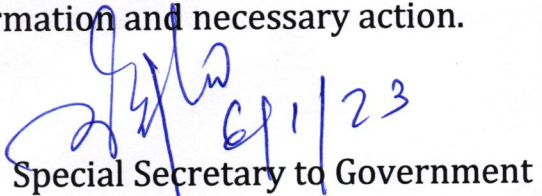 rmation and necessary action.
6/1/23
Special Secretary to Government